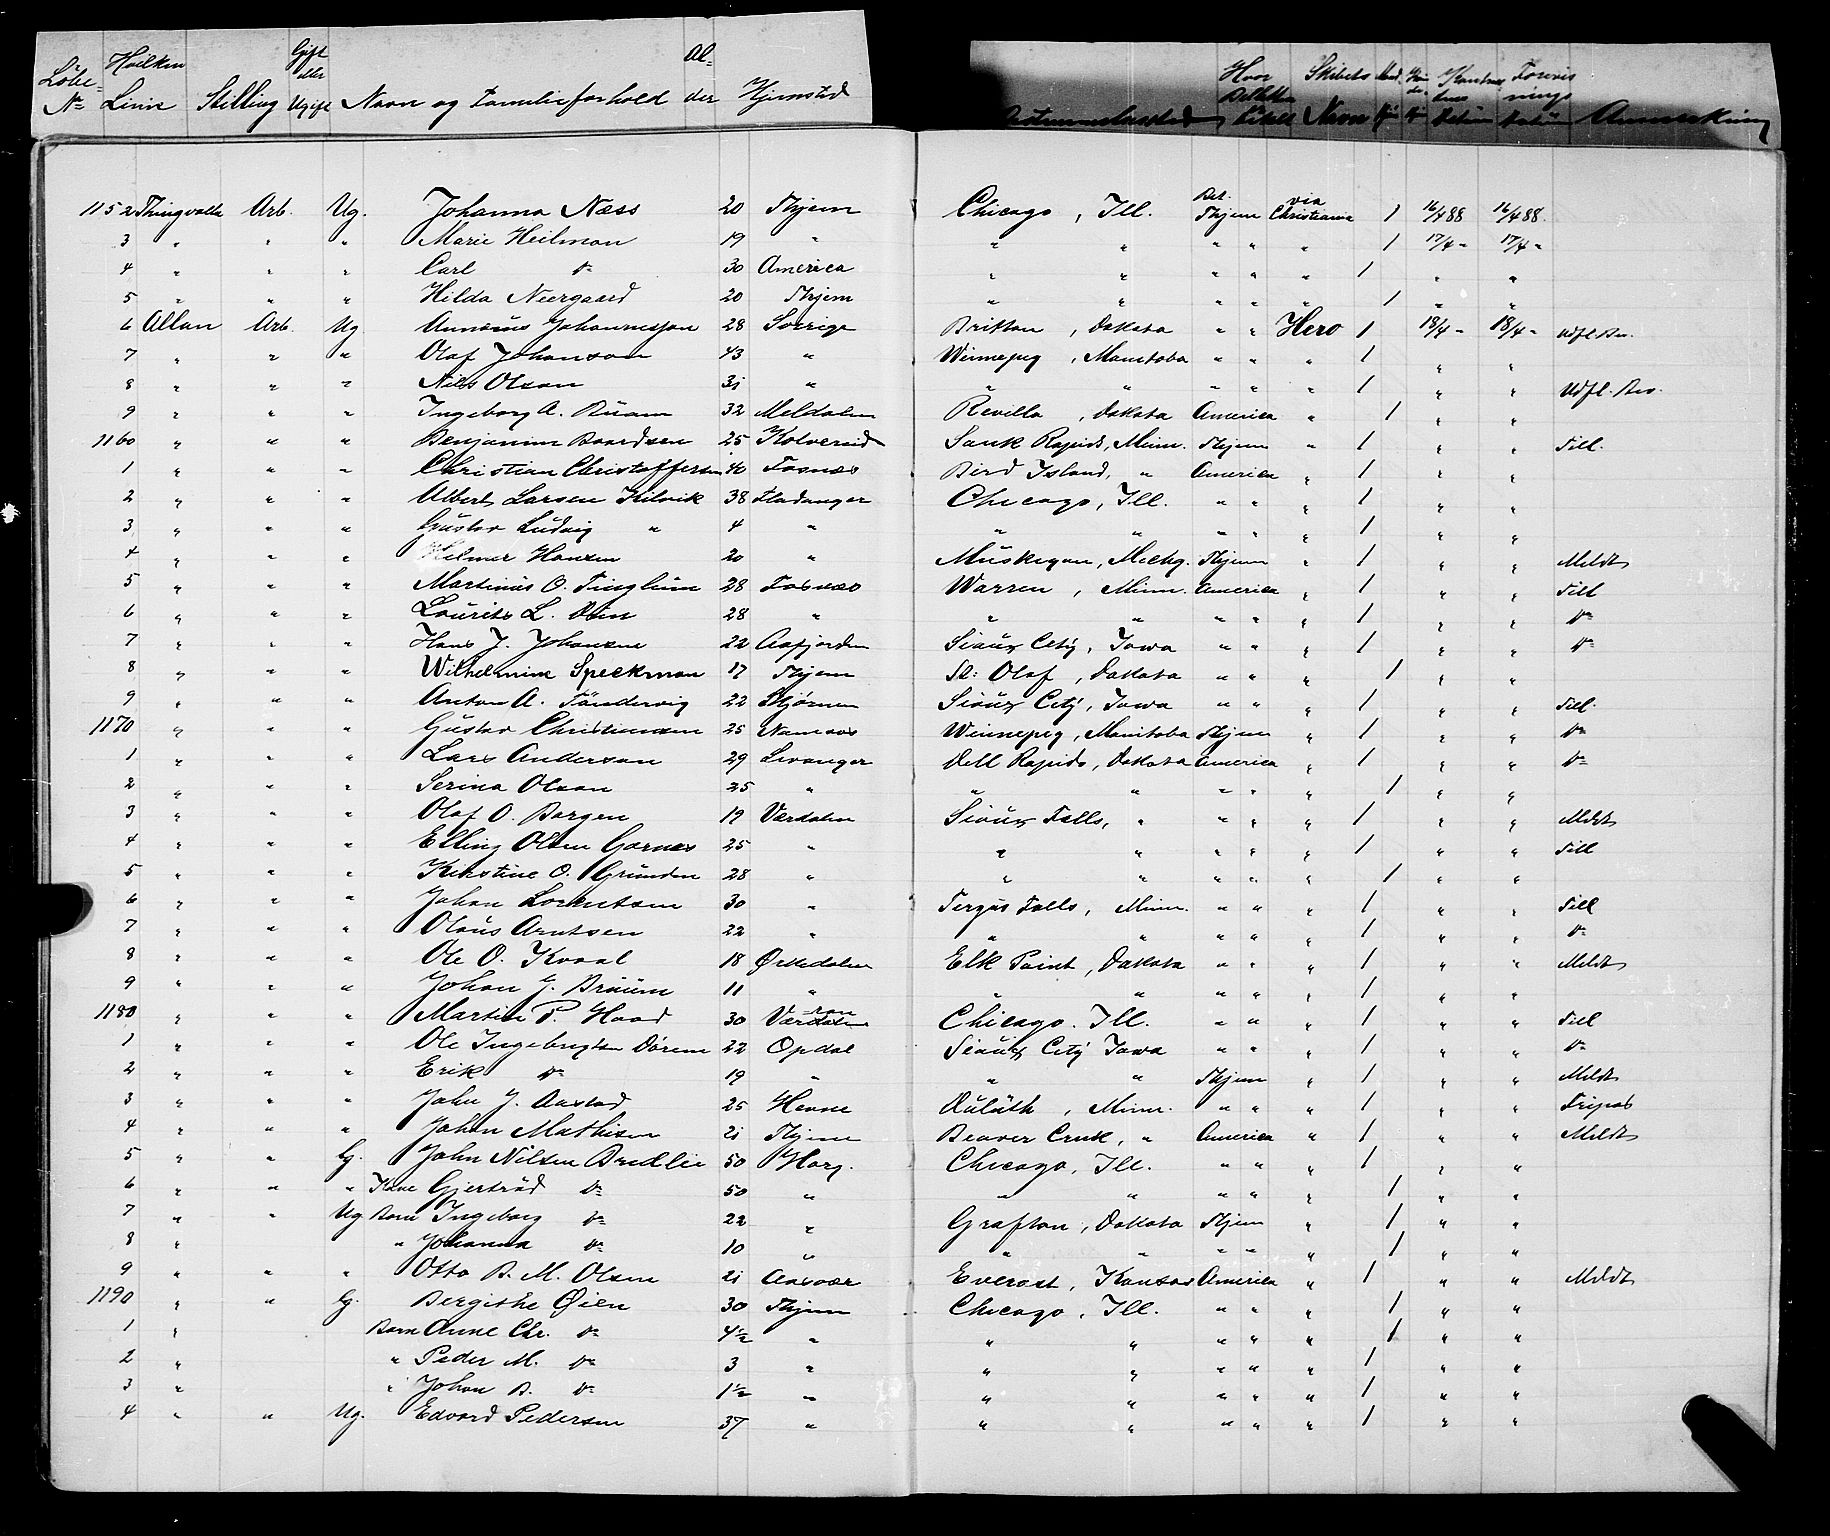 Löbe- No Hvilken Linie Stilling Gift eller Ugift Navn og Familieforhold Alder Hjemstad Hvor Billetten Skibets Navn Anmærkning
1152 Thingvalla Arb. Ug. Johanna Næss 20 Thjem Chicago, Ill. Bet. Thjem via Christiania 1 16/4 88 16/4 88.
3 " " " Marie Heilman 19 " " " " " " 1 17/4 " 17/4 "
4 " " " Carl do 30 America " " " " " 1 " "
5 " " " Hilda Neergaard 20 Thjem " " " " " 1 " "
6 Allan Arb. Ug. Annæus Johannesen 28 Sverige Britton, Dakota " " Hero 1 18/4 " 18/4 " Udfl. Bev.
7 " " " Olaf Johanson 43 " Winnepeg, Manitoba " " " 1 " "
8 " " " Nils Olson 31 " " " " " " 1 " " Udfl. Bev.
9 " " " Ingeborg A. Buam 32 Meldalen Revilla, Dakota America " 1 " "
1160 " " " Benjamin Baardsen 25 Kolvereid Sauk Rapids, Minn. Thjem " 1 " " Till.
1 " " " Christian Christoffersen 40 Fosnæs Bird Island, " America " 1 " "
2 " " " Albert Larsen Hilvik 38 Fladanger Chicago, Ill. " " " 1 " "
3 " " " Gustav Ludvig " 4 " " " " " " 1 " "
4 " " " Helmer Hansen 20 " Muskegon, Michg. Thjem " 1 " " Meldt
5 " " " Martinus O. Tinglum 28 Fosnæs Warren, Minn. America " 1 " " Till
6 " " " Laurits L. Oien 28 " " " " " " 1 " " do
7 " " " Hans J. Johansen 22 Aafjorden Sioux City, Iowa " " " 1 " " do
8 " " " Wilhelmine Speckman 17 Thjem St: Olaf, Dakota " " " 1 " "
9 " " " Anton A. Töndervig 22 Stjørnen Sioux City, Iowa " " " 1 " " Till.
1170 " " " Gustav Christiansen 25 Namsos Winnepeg, Manitoba Thjem " 1 " " do
1 " " " Lars Anderson 29 Levanger Dell Rapids, Dakota America " 1 " " do
2 " " " Serina Olson 25 " " " " " " 1 " "
3 " " " Olaf O. Borgen 19 Værdalen Sioux Falls, " " " " 1 " " Meldt
4 " " " Elling Olsen Garnæs 25 " " " " " " 1 " " Till
5 " " " Kirstine O. Grunden 28 " " " " " " 1 " "
6 " " " Johan Lorentsen 30 " Fergus Falls, Minn. " " " 1 " " Till
7 " " " Olaus Arntsen 22 " " " " " " 1 " " do
8 " " " Ole O. Kvaal 18 Ørkedalen Elk Point, Dakota " " " 1 " " Meldt
9 " " " Johan J. Bruum 11 " " " " " " 1 " "
1180 " " " Martin P. Haad 30 Værdalen Chicago. Ill. " " " 1 " " Till
1 " " " Ole Ingebrigtsen Dörem 22 Opdal Sioux City Iowa " " " 1 " " do
2 " " " Erik do 19 " " " Thjem " 1 " " Meldt
3 " " " John J. Aastad 25 Hevne Duluth, Minn. " " " 1 " " Fripas
4 " " " Johan Mathisen 21 Thjem Beaver Creek, " America " 1 " " Meldt
5 " " G. John Nilsen Bredlie 50 Horg. Chicago, Ill. " " " 1 " "
6 " " " Kone Gjertrud do 50 " " " " " " 1 " "
7 " " Ug Barn Ingeborg do 22 " Grafton, Dakota Thjem " 1 " "
8 " " Johanna do 10 " " " " " " 1 " "
9 " " " Otto B. M. Olsen 21 Aasvær Everest, Kansas America " 1 " " Meldt
1190 " " G. Bergithe Øien 30 Thjem Chicago, Ill. " " " 1 " "
1 " Barn Anne Chr. do 4½ " " " " " " 1 " "
2 " " Peder M. do 3 " " " " " " 1 " "
3 " " Johan B. do 1½ " " " " " " 1 " "
4 " " Ug. Edvard Pedersen 37 " " " " " " 1 " "